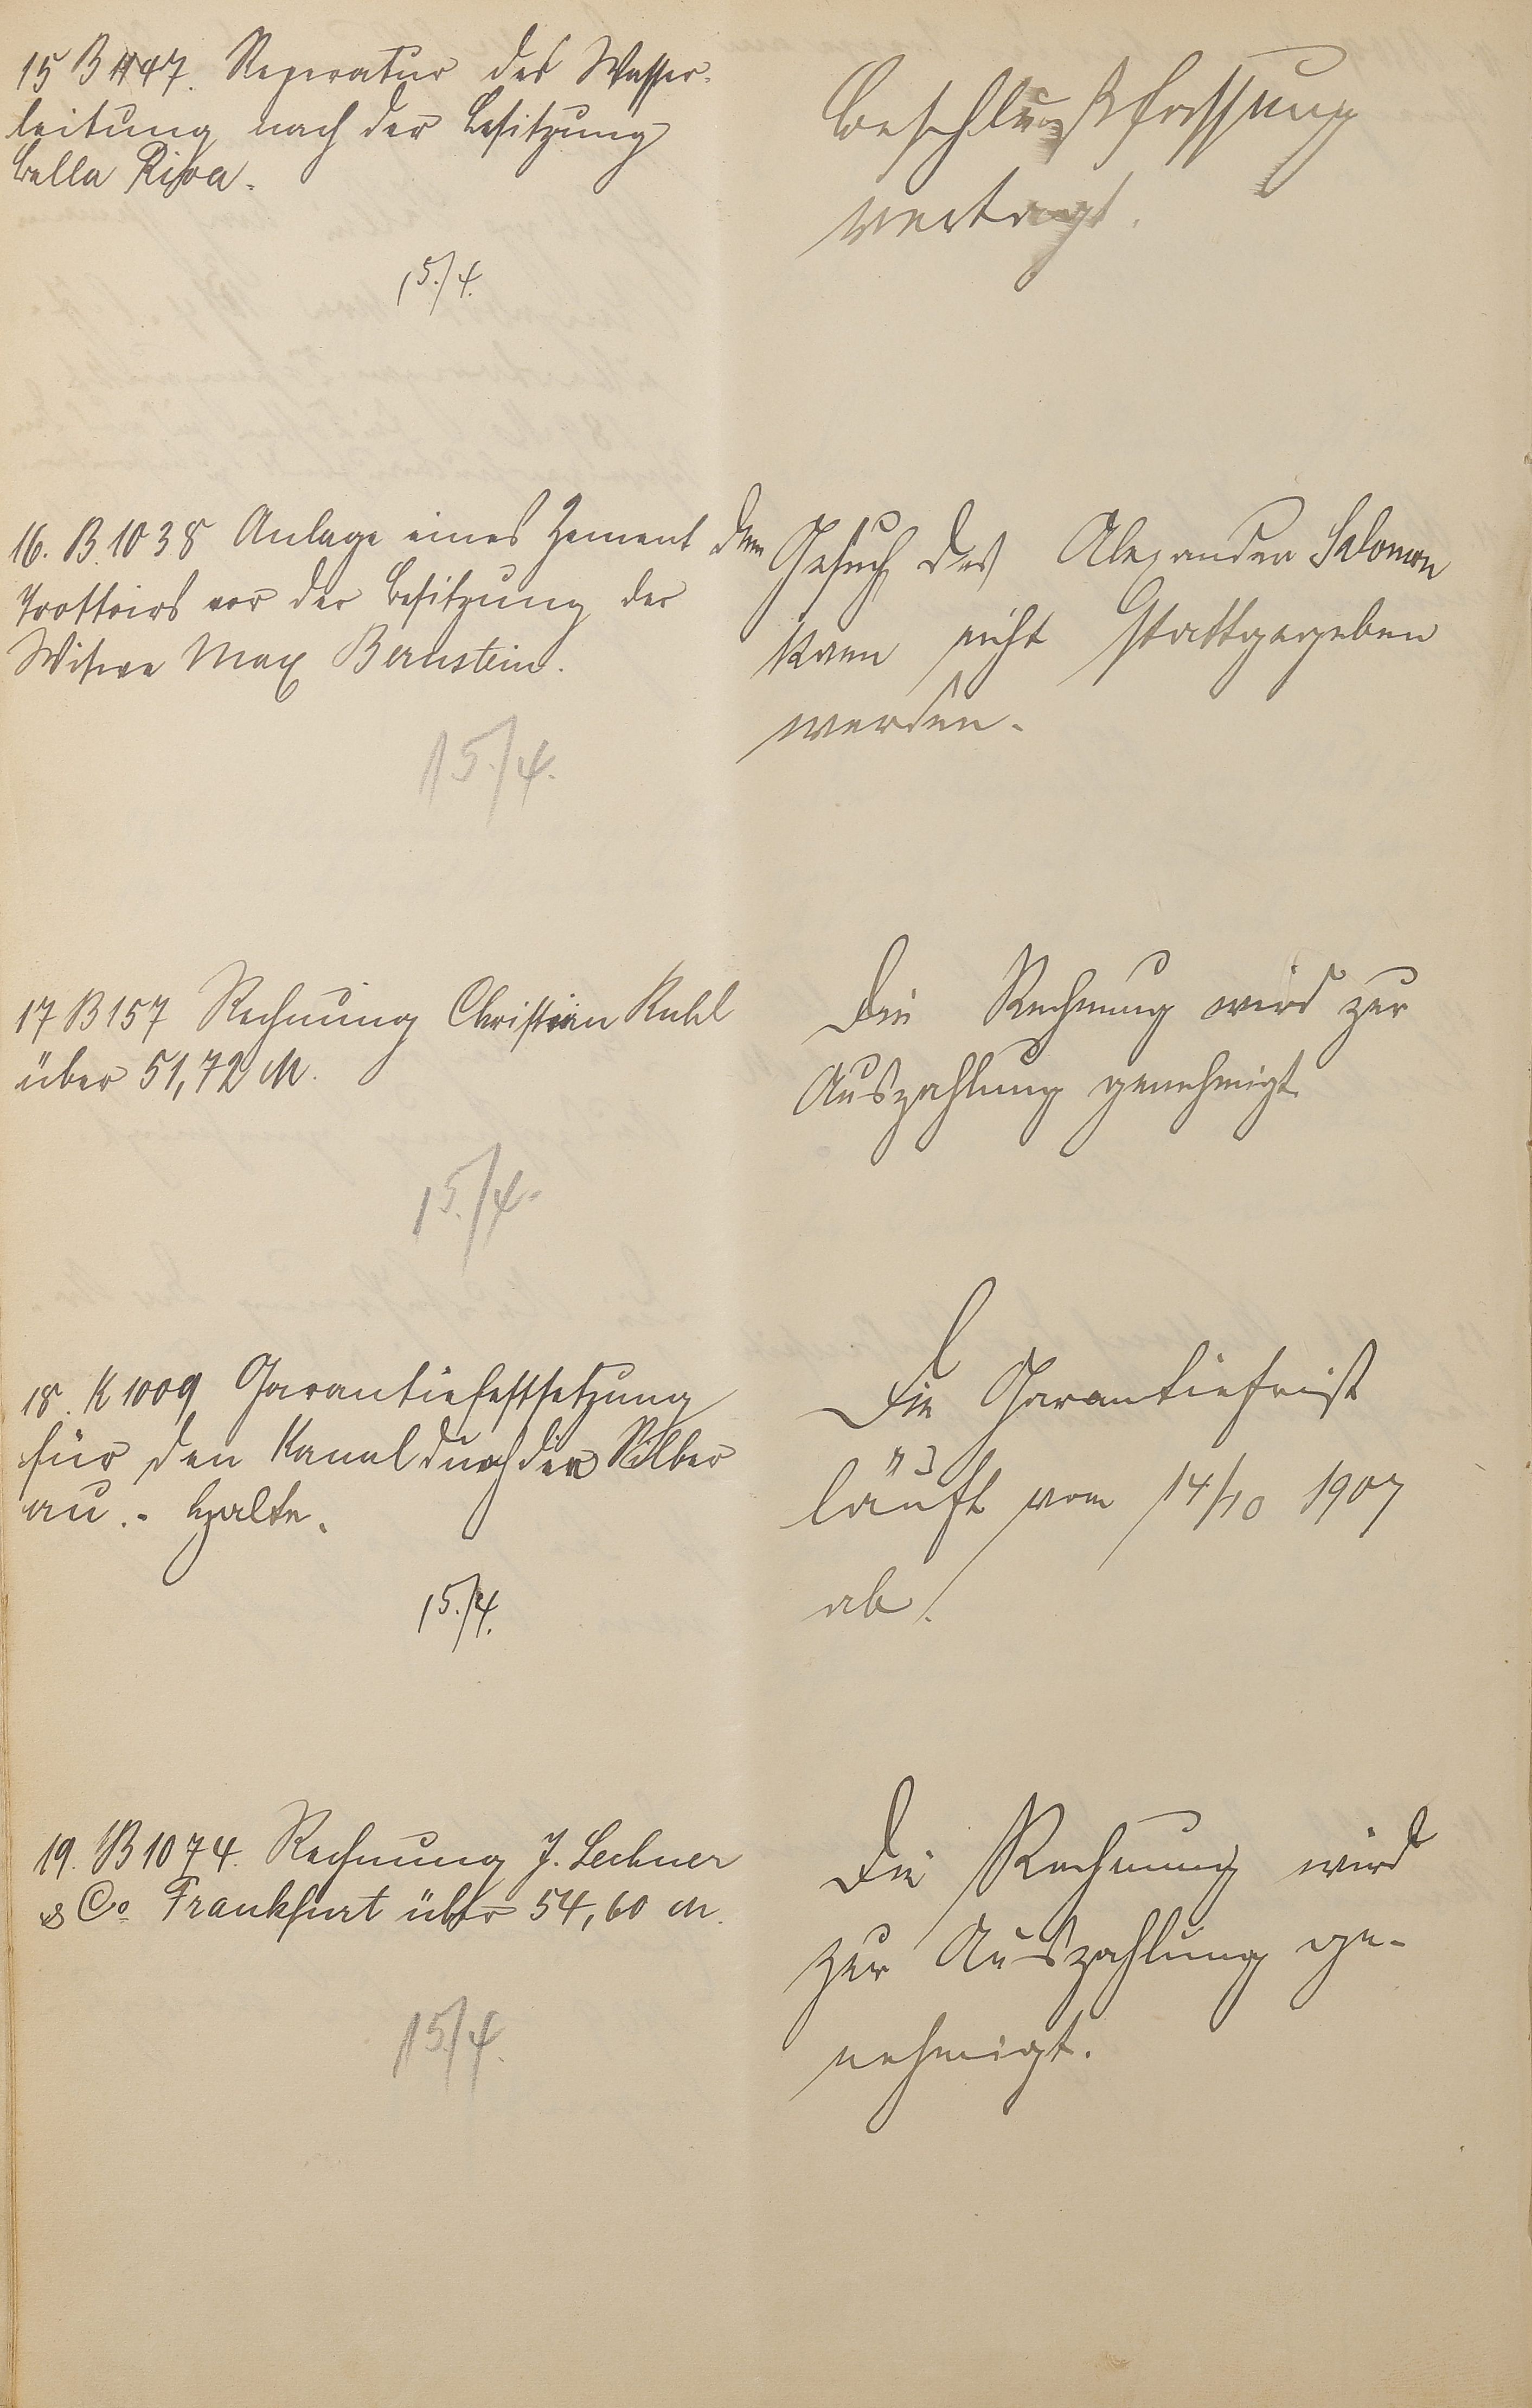 15 B 1147. Reperatur der Wasser-
leitung nach der Besitzung
Bella Riva.
15./4.
Beschlußfassung
vertagt.
16. B. 1038 Anlage eines Zement
Trottoirs vor der Besitzung der
Witwe Max Bernstein.
15./4.
Dem Gesuch des Alexander Salomon
kann nicht stattgegeben
werden.
17 B 157 Rechnung Christian Ruhl
über 51,72 M.
15./4.
Die Rechnung wird zur
Auszahlung genehmigt
18. K 1009 Garantiefestsetzung
für den Kanal durch die Silber
au.
15./4.
Die Garantiefrist
läuft vom 14/10 1907
ab.
19. B 1074. Rechnung J. Lechner
& Co Frankfurt über 54,60 M.
15./4.
Die Rechnung wird
zur Auszahlung ge-
nehmigt.